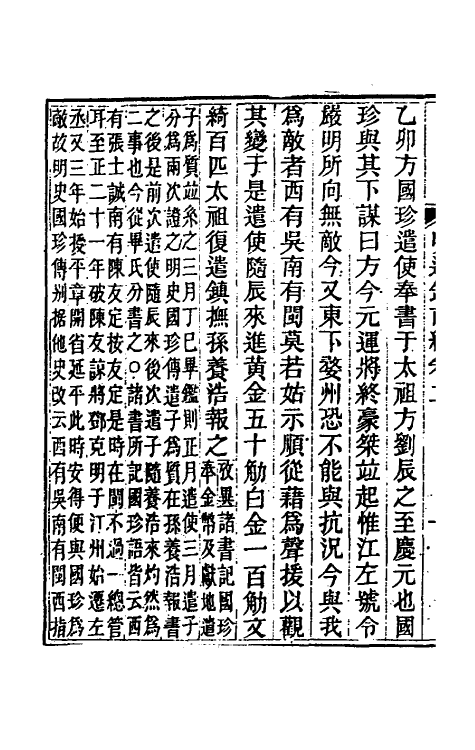 乙卯方國珍遣使奉書于太祖方劉辰之至慶元也國
珍與其下謀曰方今元運將終豪桀竝起惟江左號令
嚴明所向無敵今又東下婺州恐不能與抗況今與我
爲敵者西有吳南有閩莫若姑示順從藉爲聲援以觀
其變于是遣使隨辰來進黃金五十觔白金一百觔文
綺百匹太祖復遣鎮撫孫養浩報之
攷異諸書記國珍
奉金幣及獻地遣
子爲質竝系之三月丁巳畢鑑則正月遣使三月遣子
分爲兩次證之明史國珍傳遣子爲質在孫養浩報書
之後是前次遣使隨辰來後次遣子隨養浩來灼然爲
二事也今從畢氏分書之○諸書所記國珍語皆云西
有張士誠南有陳友定按友定是時在閩不過一總管
耳至正二十一年破陳友諒將鄧克明于汀州始遷左
丞又三年始授平章開省延平此時安得便與國珍爲
敵故明史國珍傳据他史改云西有吳南有閩西指